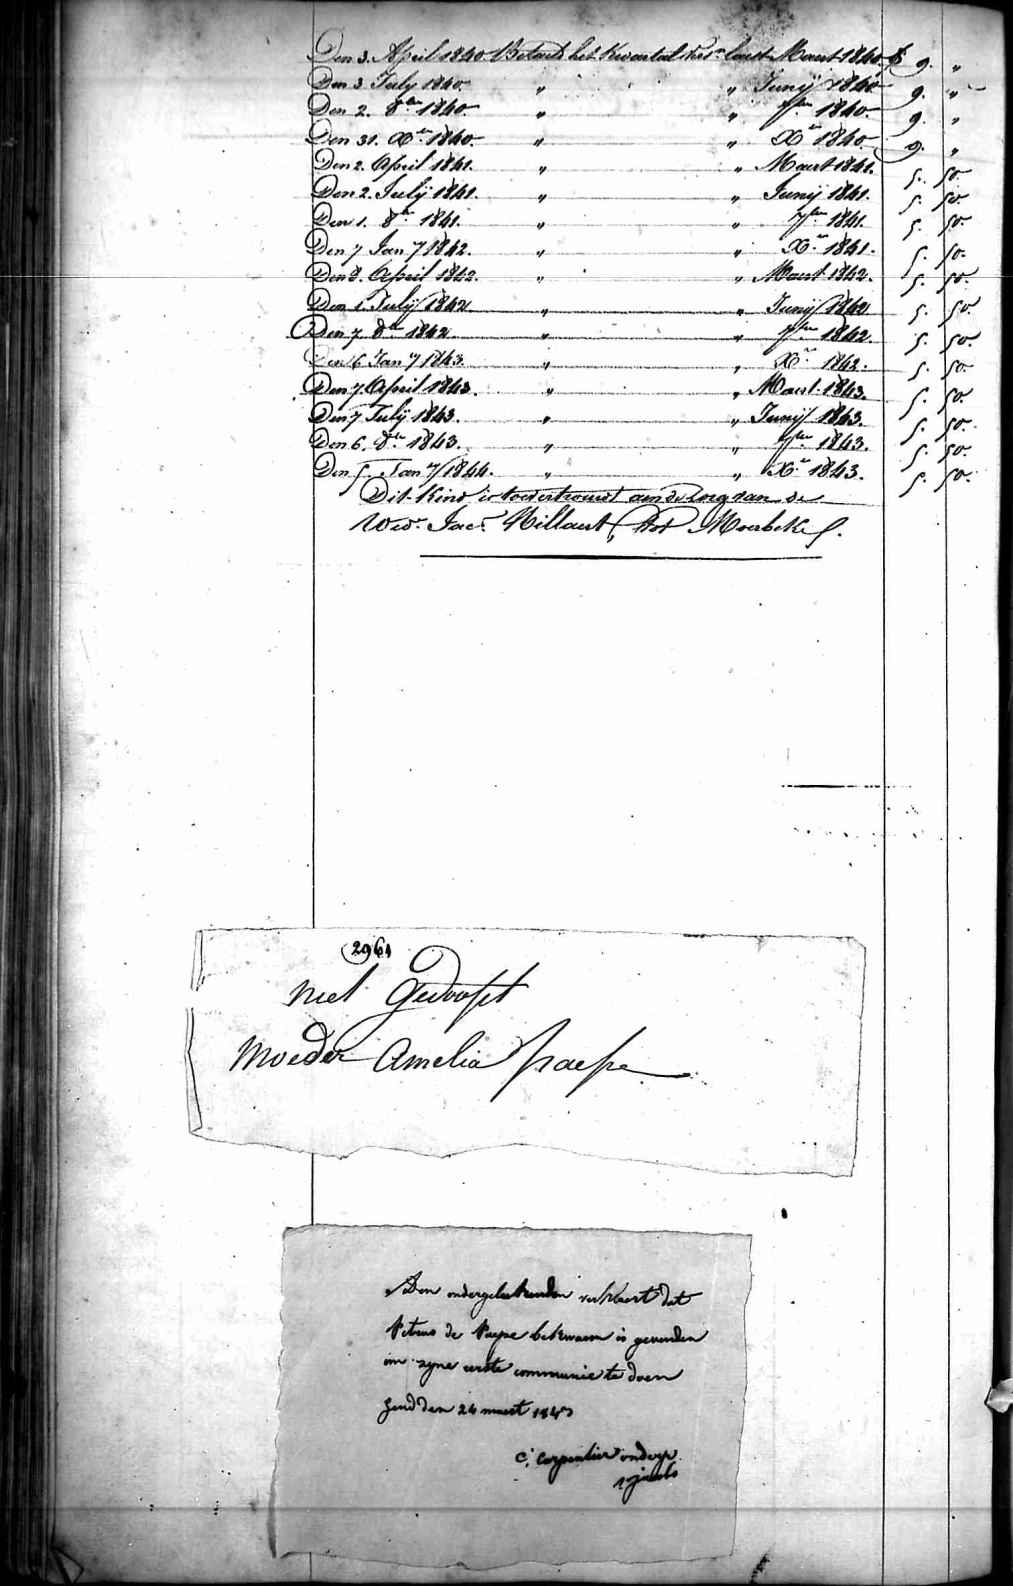 Den 3. April 1840 Betaald het Kwartaal laast Maart 1840 9. "
Den 3 July 1840. " " Junij 1840 9. "
Den 2. 8ber 1840. " " 7ber 1840. 9. "
Den 31. Xber 1840. " " Xber 1840. 9. "
Den 2. April 1841. " " Maart 1841. 5. 50.
Den 2. Julij 1841. " " Junij 1841. 5. 50.
Den 1. 8ber 1841. " " 7ber 1841. 5. 50.
Den 7 Jan 7 1842. " " Xber 1841. 5. 50.
Den 8. April 1842. " " Maart 1842. 5. 50.
Den 1. Julij 1842. " " Junij 1842 5. 50.
Den 7. 8ber 1842. " " 7ber 1842. 5. 50.
Den 6 Jan 7 1843. " " Xber 1842. 5. 50.
Den 7. April 1843. " " Maart 1843. 5. 50
Den 7 Julij 1843. " " Junij 1843. 5. 50.
Den 6. 8ber 1843. " " 7ber 1843. 5. 50.
Den 5. Jan 7 1844. " " Xber 1843. 5. 50.
Dit Kind is toevertrouwt aen de zorg van de
Wed. Jac. Millaert, tot Moerbeke.
2961
niet gedoopt
moeder Amelia paepe
Den ondergeteekenden verklaert dat
Petrus de Paepe bekwaem is gevonden
om zyne eerste communie te doen
gend den 24 maert
C. Carpentier onderp